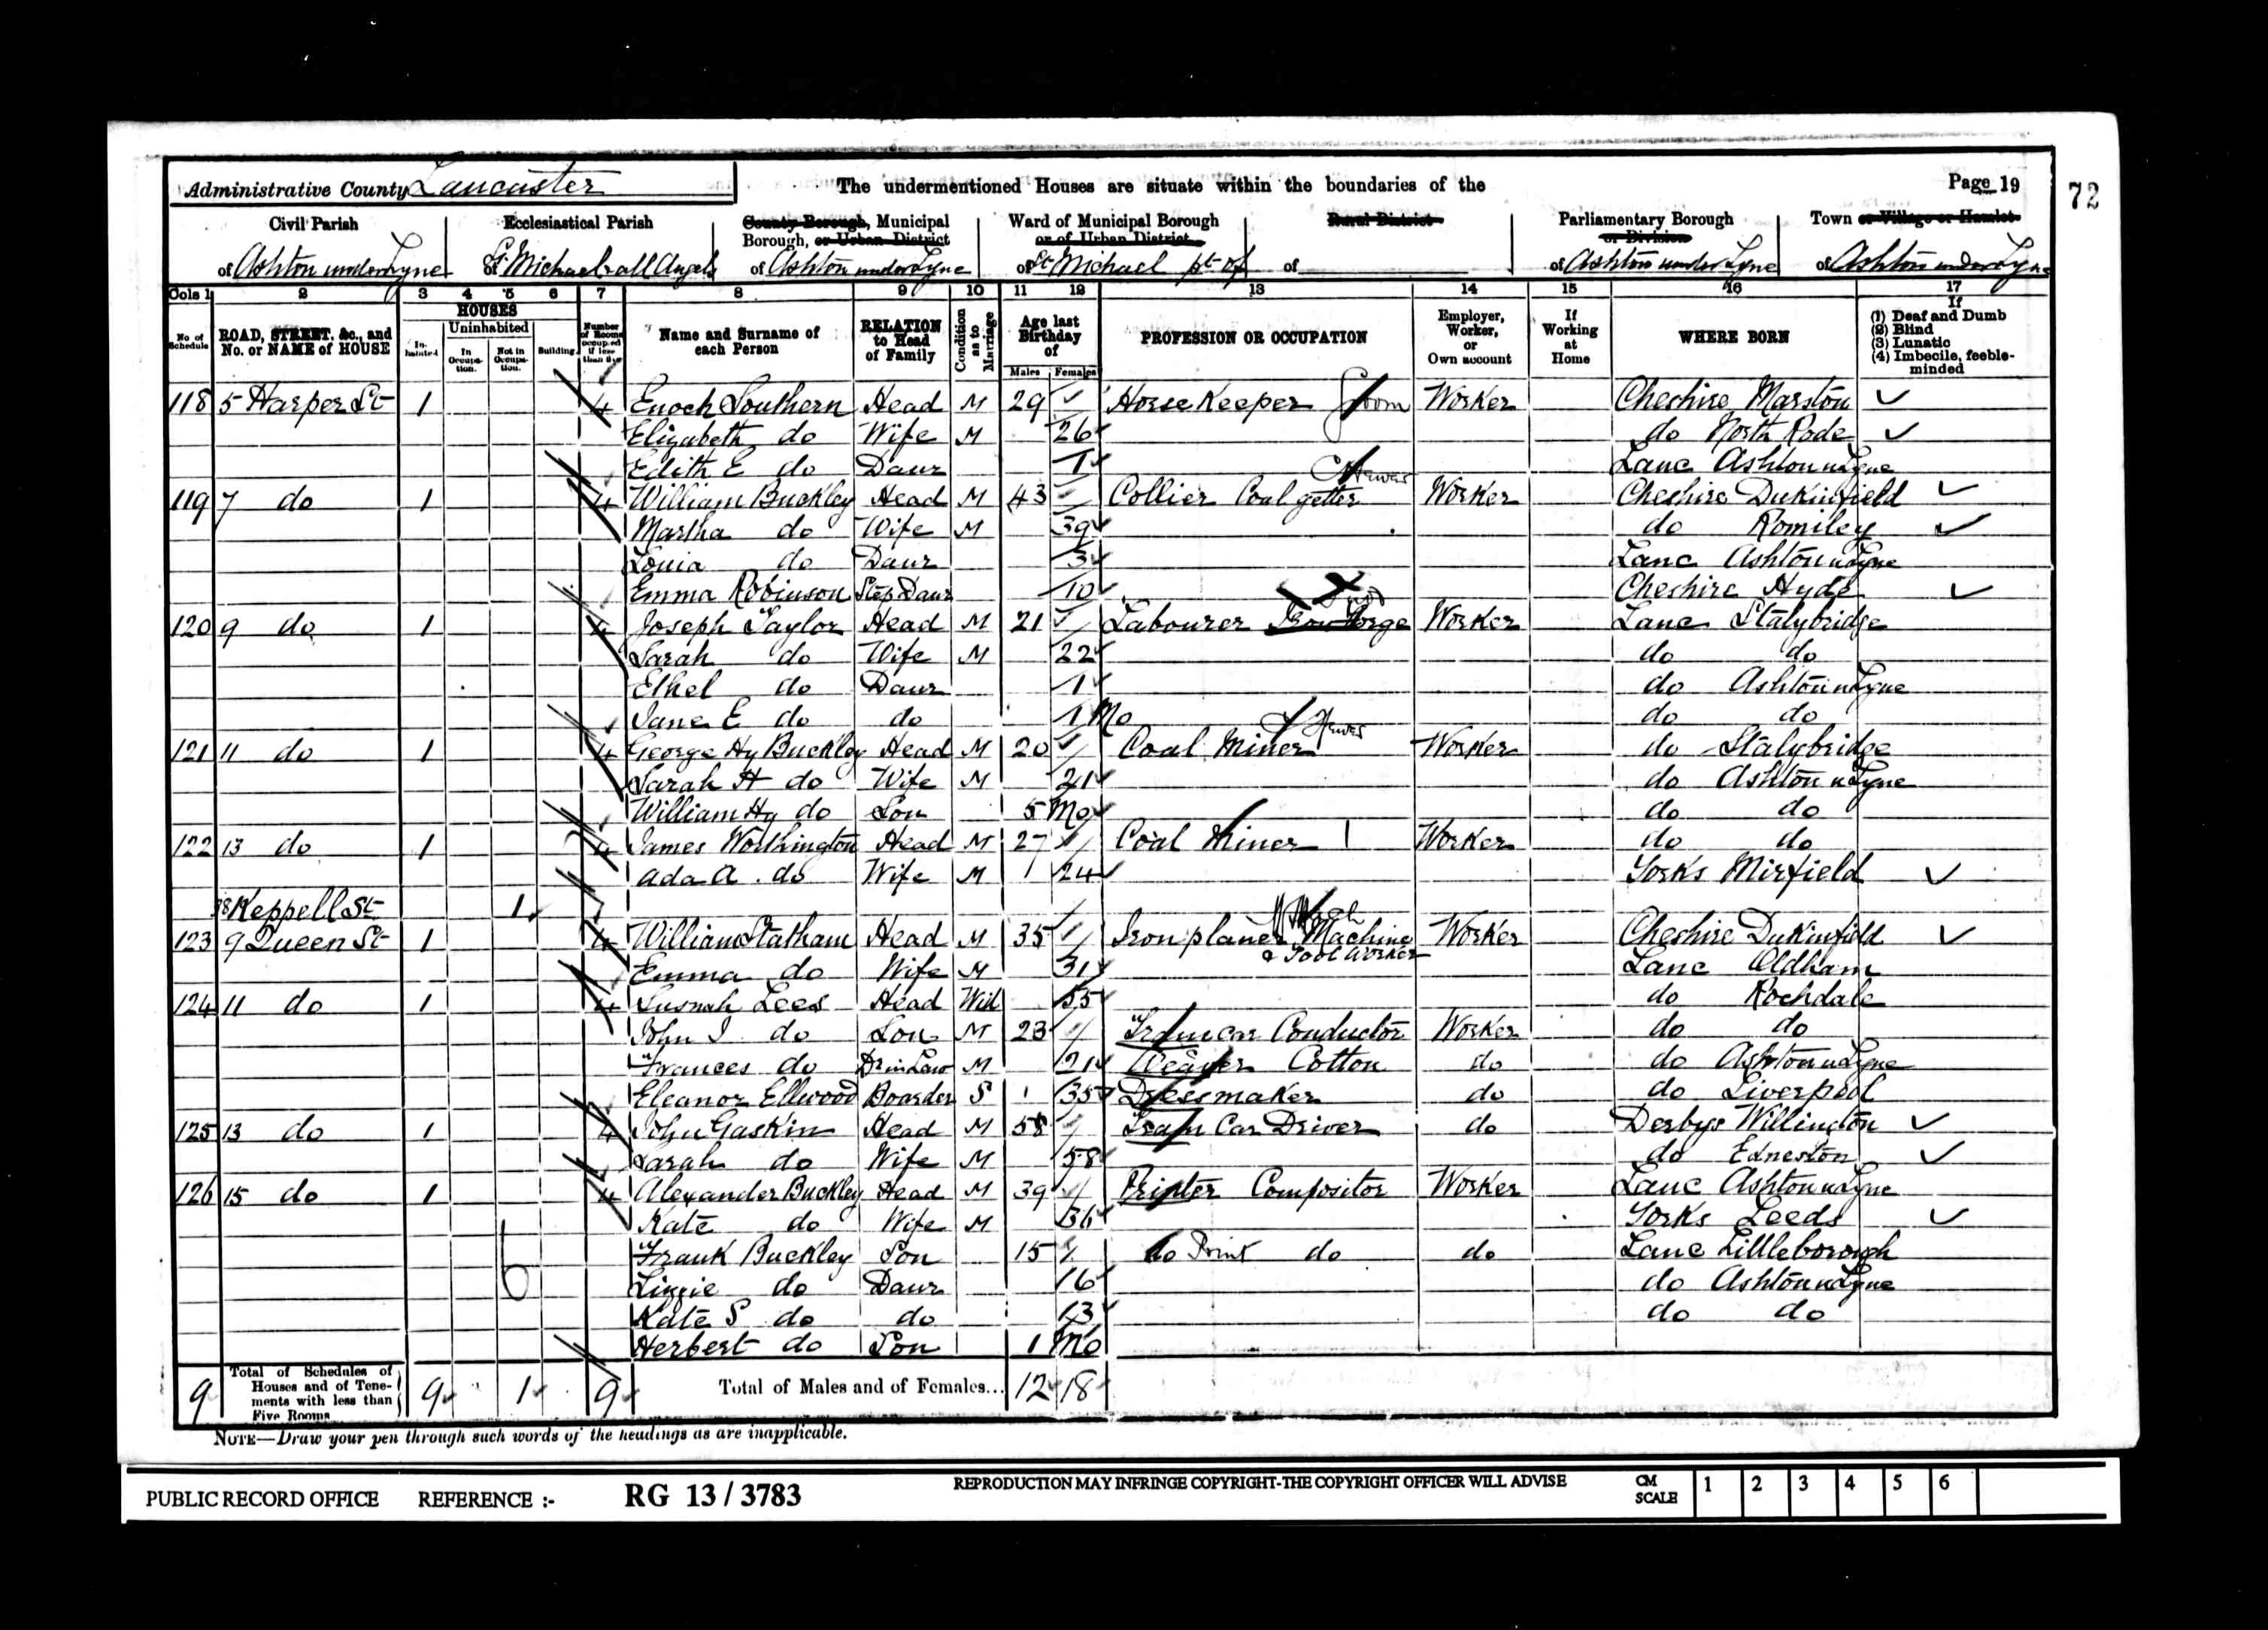 Administrative County Lancaster The undermentioned Houses are situate within the boundaries of the Page 19 72
Civil Parish Ecclesiastical Parish County Borough, Municipal Borough, or Urban District Ward of Municipal Borough or of Urban District Rural District Parliamentary Borough or Division Town or Village or Hamlet
of Ashton under Lyne of St Michael & all Angels of Ashton under Lyne of St Michael pt of of of Ashton under Lyne of Ashton under Lyne
Cols 1 2 3 4 5 6 7 8 9 10 11 12 13 14 15 16 17
No of Schedule ROAD, STREET, &c., and No. or NAME of HOUSE HOUSES Inhabited Uninhabited In Occupation. Not in Occupation. Building Number of Rooms occupied if less than five Name and Surname of each Person RELATION to Head of Family Condition as to Marriage Age last Birthday of Males Females PROFESSION OR OCCUPATION Employer, Worker, or Own account If Working at Home WHERE BORN If (1) Deaf and Dumb (2) Blind (3) Lunatic (4) Imbecile, feeble-minded
118 5 Harper St 1 4 Enoch Southern Head M 29 Horse Keeper Groom Worker Cheshire Marston
Elizabeth do Wife M 26 do North Rode
Edith E do Daur 1 Lanc Ashton u Lyne
119 7 do 1 4 William Buckley Head M 43 Collier Coal getter Hewer Worker Cheshire Dukinfield
Martha do Wife M 39 do Romiley
Louia do Daur 3 Lanc Ashton u Lyne
Emma Robinson Step Daur 10 Cheshire Hyde
120 9 do 1 4 Joseph Taylor Head M 21 Labourer Iron Forge Worker Lanc Stalybridge
Sarah do Wife M 22 do do
Ethel do Daur 1 do Ashton u Lyne
Jane E do do 1 Mo do do
121 11 do 1 4 George Hy Buckley Head M 20 Coal Miner Hewer Worker do Stalybridge
Sarah H do Wife M 21 do Ashton u Lyne
William Hy do Son 5 Mo do do
122 13 do 1 4 James Worthington Head M 27 Coal Miner Worker do do
Ada A. do Wife M 24 Yorks Mirfield
38 Keppell St 1
123 9 Queen St 1 4 William Statham Head M 35 Iron planer Machine & Tool Worker Worker Cheshire Dukinfield
Emma do Wife M 31 Lanc Oldham
124 11 do 1 4 Susnah Lees Head Wid 55 do Rochdale
John I do Son M 23 Tram car Conductor Worker do do
Frances do Dr in Law M 21 Weaver Cotton do do Ashton u Lyne
Eleanor Ellwood Boarder S 35 Dressmaker do do Liverpool
125 13 do 1 4 John Gaskin Head M 58 Tram Car Driver do Derbys Willington
Sarah do Wife M 58 do Edneston
126 15 do 1 4 Alexander Buckley Head M 39 Printer Compositor Worker Lanc Ashton u Lyne
Kate do Wife M 36 Yorks Leeds
Frank Buckley Son 15 do Print do do Lanc Littleborough
Lizzie do Daur 16 do Ashton u Lyne
Kate S do do 13 do do
Herbert do Son 1 Mo
9 Total of Schedules of Houses and of Tenements with less than Five Rooms 9 1 9 Total of Males and of Females... 12 18
NOTE—Draw your pen through such words of the headings as are inapplicable.
PUBLIC RECORD OFFICE REFERENCE :- RG 13 / 3783 REPRODUCTION MAY INFRINGE COPYRIGHT-THE COPYRIGHT OFFICER WILL ADVISE CM SCALE 1 2 3 4 5 6